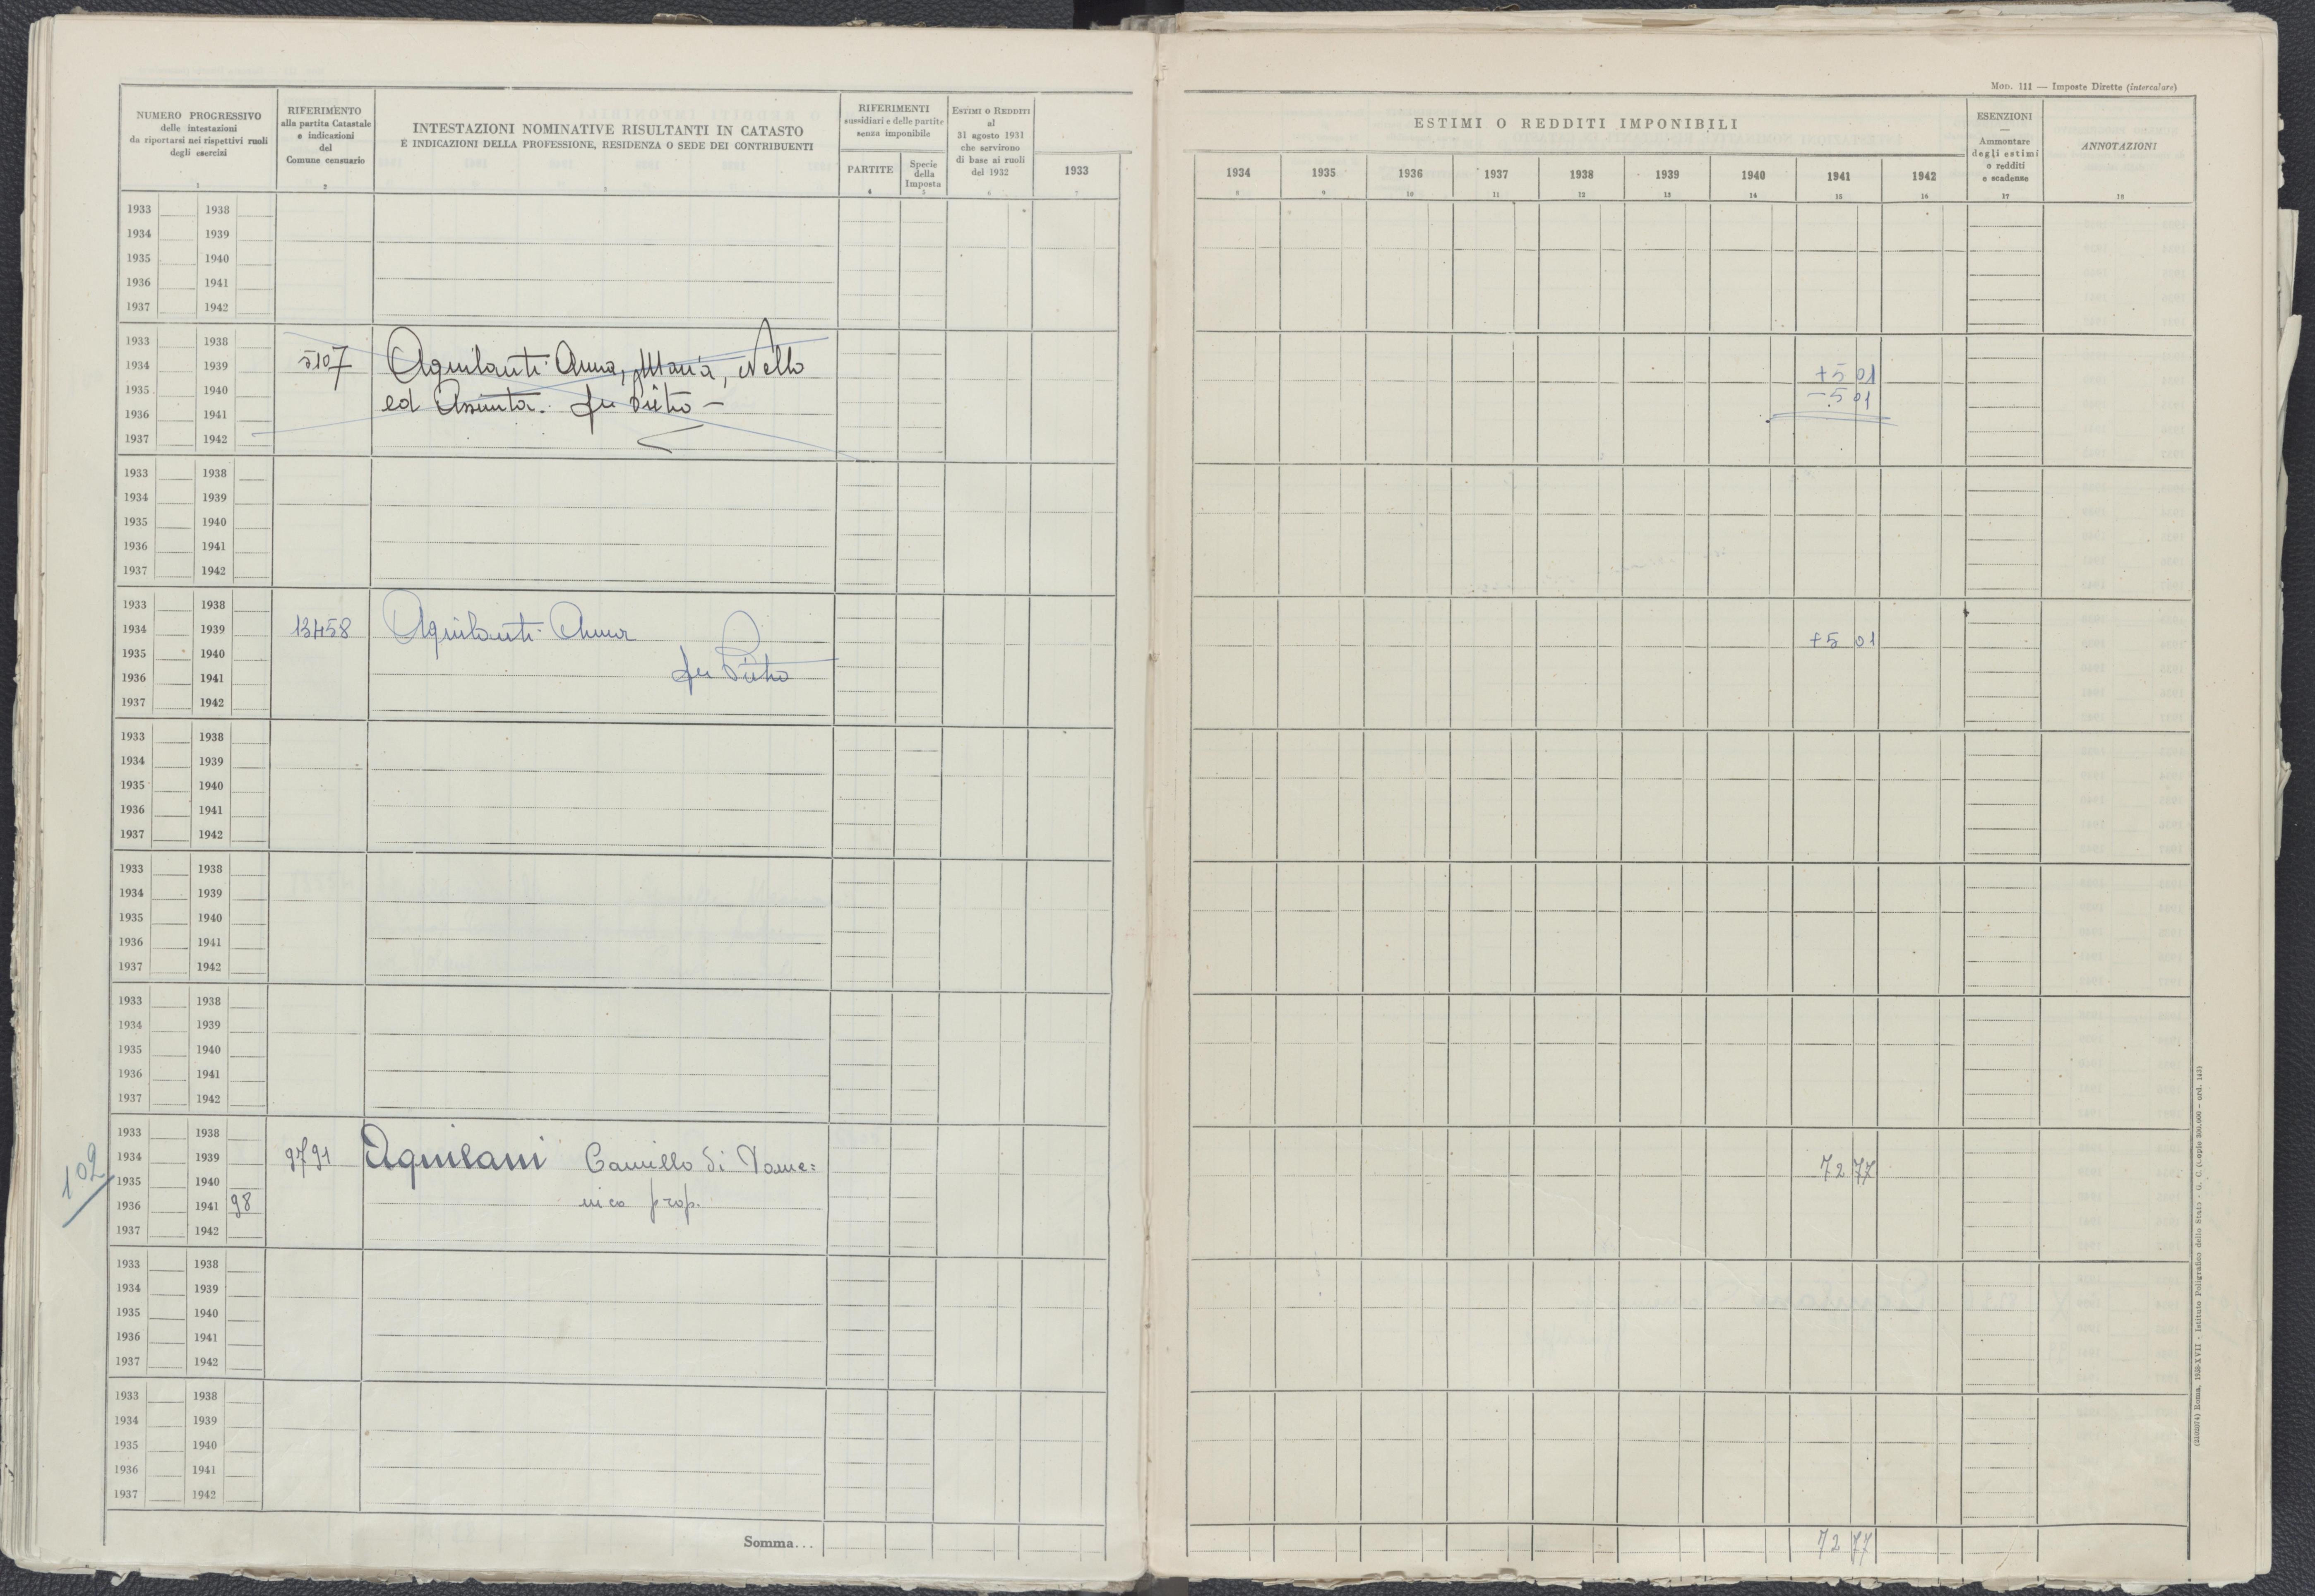 NUMERO PROGRESSIVO
delle intestazioni
da riportarsi nei rispettivi ruoli
degli esercizi
1
RIFERIMENTO
alla partita Catastale
e indicazioni
del
Comune censuario
2
INTESTAZIONI NOMINATIVE RISULTANTI IN CATASTO
E INDICAZIONI DELLA PROFESSIONE, RESIDENZA O SEDE DEI CONTRIBUENTI
3
RIFERIMENTI
sussidiari e delle partite
senza imponibile
PARTITE
4
Specie
della
Imposta
5
ESTIMI O REDDITI
al
31 agosto 1931
che servirono
di base ai ruoli
del 1932
6
1933
7
1933 1938
1934 1939
1935 1940
1936 1941
1937 1942
1933 1938
5107 Aquilanti Anna, Maria, Nello
1934 1939
1935 1940
ed Assunta. fu Pietro —
1936 1941
1937 1942
1933 1938
1934 1939
1935 1940
1936 1941
1937 1942
1933 1938
1934 1939 13458 Aquilanti Anna
1935 1940
fu Pietro
1936 1941
1937 1942
1933 1938
1934 1939
1935 1940
1936 1941
1937 1942
1933 1938
1934 1939
1935 1940
1936 1941
1937 1942
1933 1938
1934 1939
1935 1940
1936 1941
1937 1942
102
1933 1938
1934 1939 9791 Aquilani Camillo di Dome=
1935 1940
1936 1941 98 nico prop.
1937 1942
1933 1938
1934 1939
1935 1940
1936 1941
1937 1942
1933 1938
1934 1939
1935 1940
1936 1941
1937 1942
Somma...
MOD. 111 — Imposte Dirette (intercalare)
ESTIMI O REDDITI IMPONIBILI
1934 1935 1936 1937 1938 1939 1940 1941 1942
8 9 10 11 12 13 14 15 16
ESENZIONI
—
Ammontare
degli estimi
o redditi
e scadenze
17
ANNOTAZIONI
18
+5 01
-5 01
+5 01
72 77
72 77